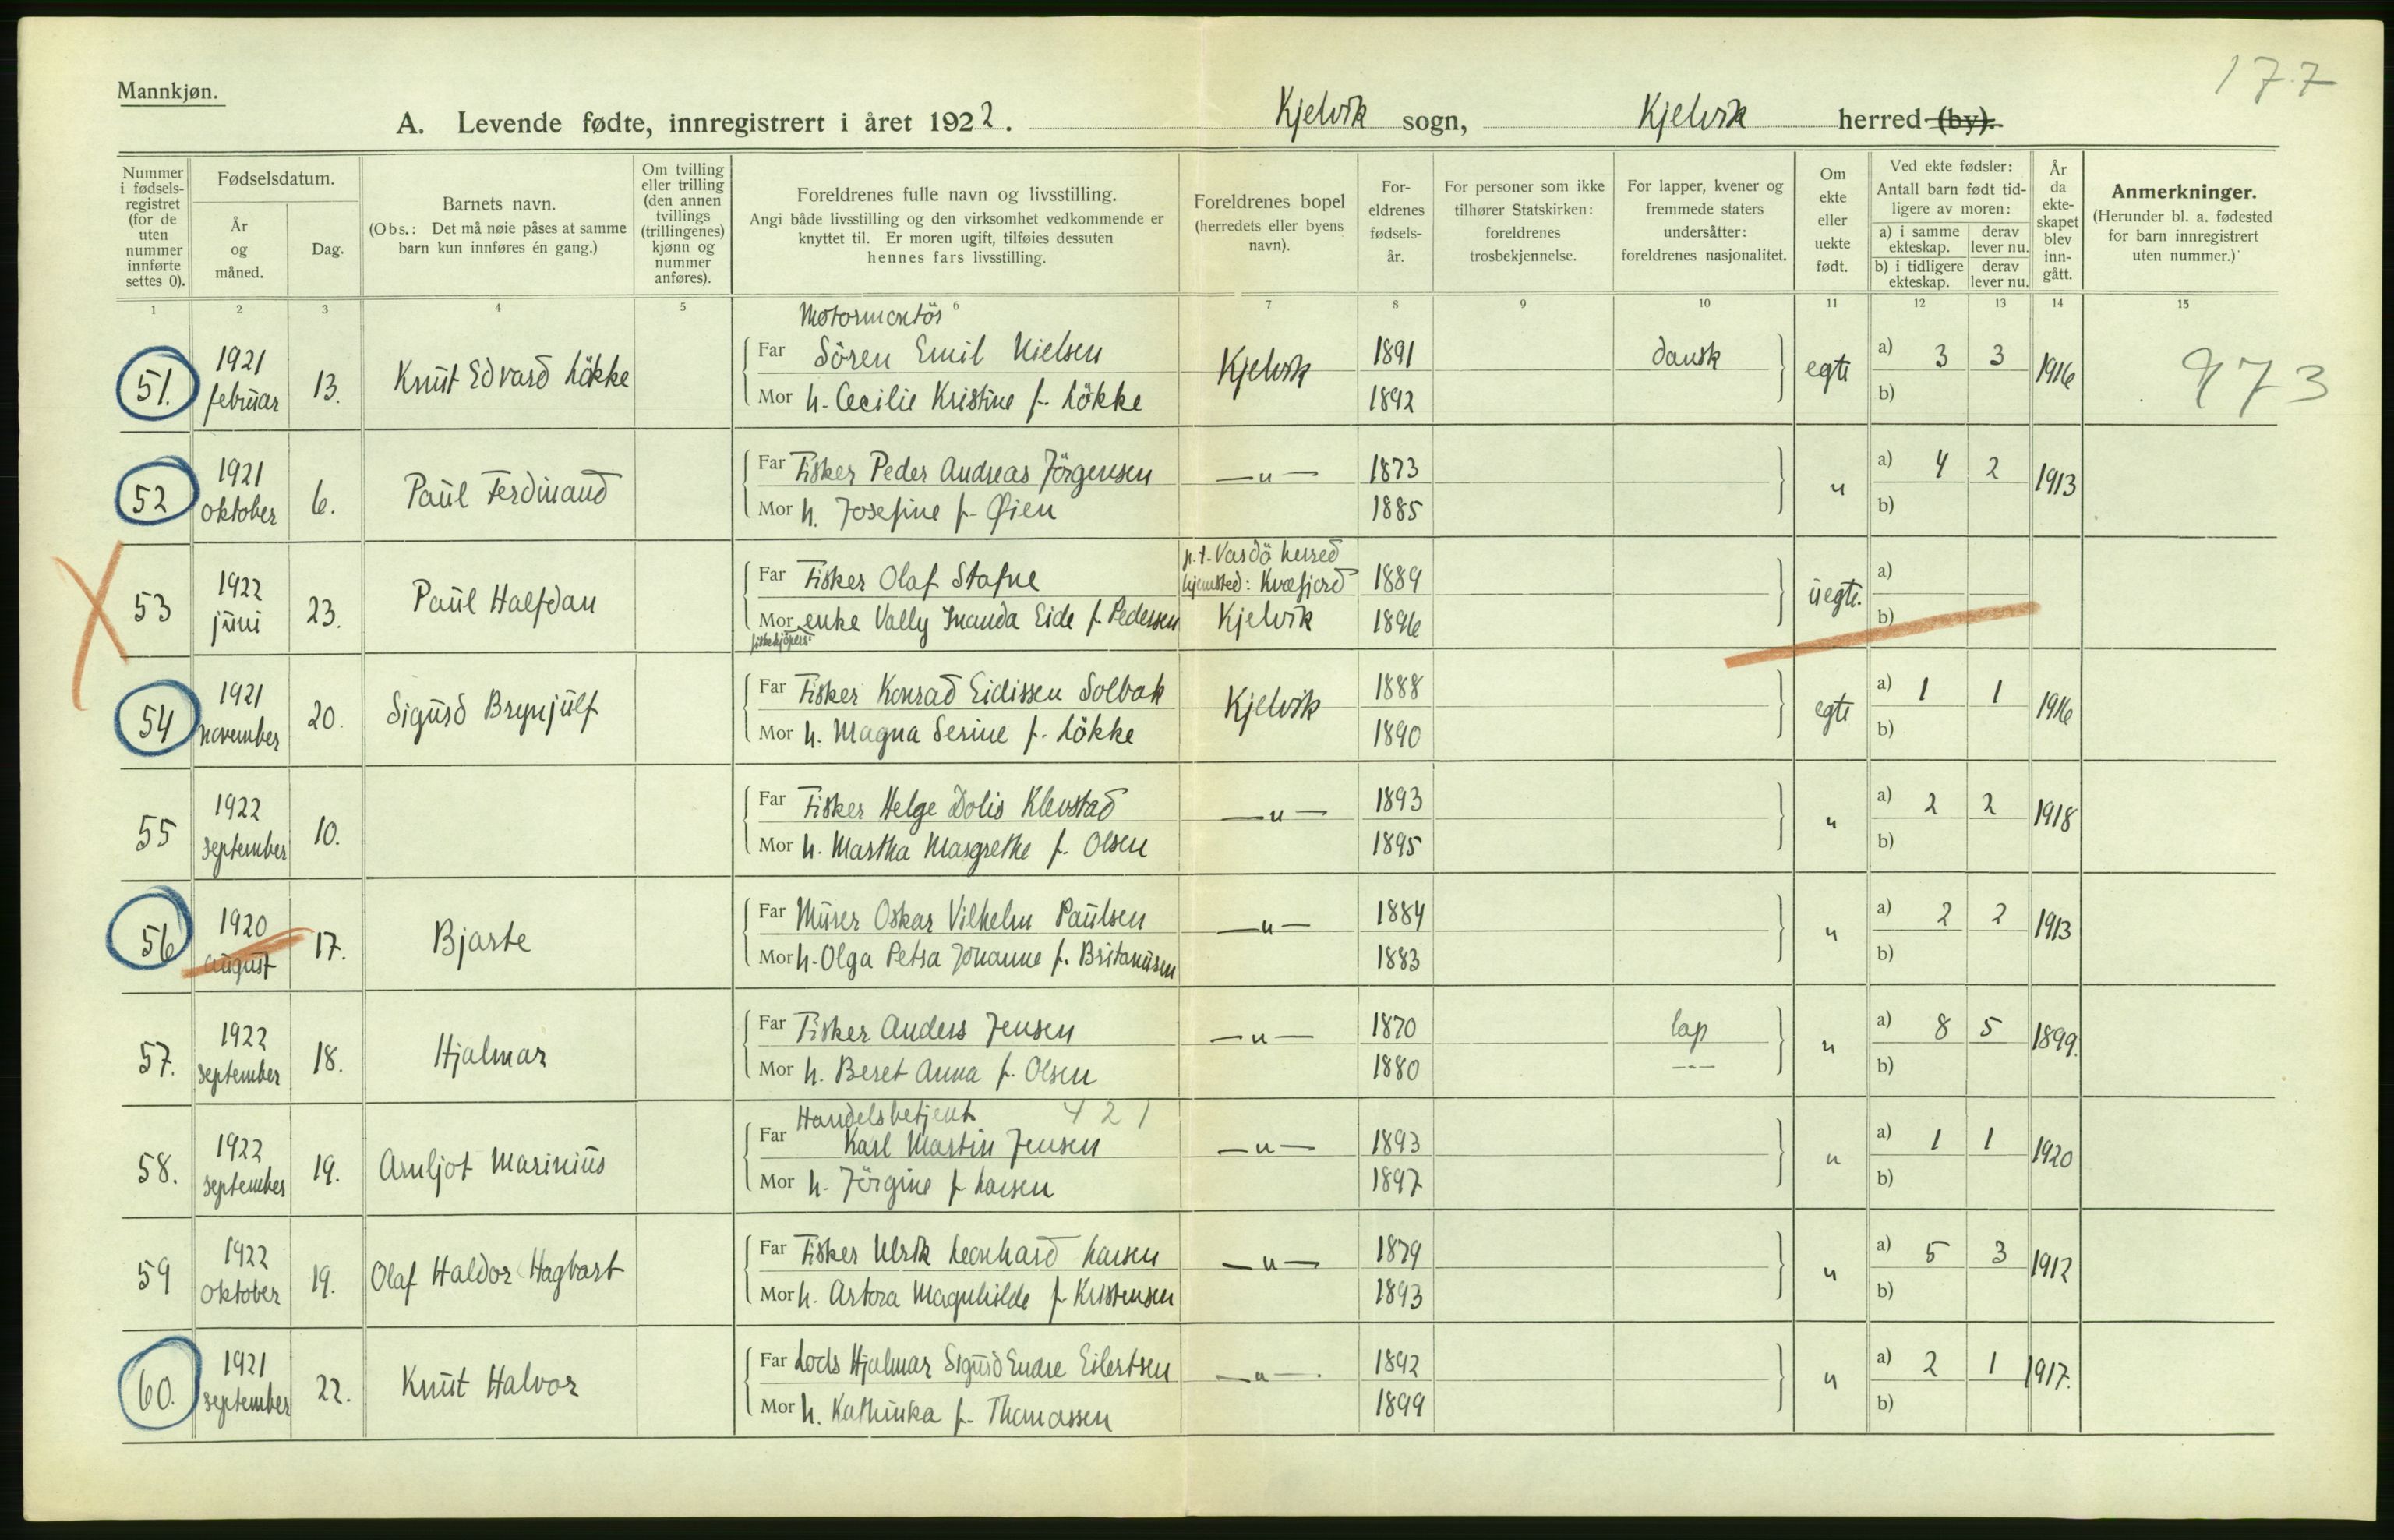 177
Mannkjøn.
A. Levende fødte, innregistrert i året 1922. Kjelvik sogn, Kjelvik herred (by).
Nummer i fødselsregistret (for de uten nummer innførte settes 0).
Fødselsdatum.
År og måned.
Dag.
Barnets navn.
(Obs.: Det må nøie påses at samme barn kun innføres én gang.)
Om tvilling eller trilling (den annen tvillings (trillingenes) kjønn og nummer anføres).
Foreldrenes fulle navn og livsstilling.
Angi både livsstilling og den virksomhet vedkommende er knyttet til. Er moren ugift, tilføies dessuten hennes fars livsstilling.
Foreldrenes bopel (herredets eller byens navn).
For-eldrenes fødsels-år.
For personer som ikke tilhører Statskirken: foreldrenes trosbekjennelse.
For lapper, kvener og fremmede staters undersåtter: foreldrenes nasjonalitet.
Om ekte eller uekte født.
Ved ekte fødsler:
Antall barn født tidligere av moren:
a) i samme ekteskap. derav lever nu.
b) i tidligere ekteskap. derav lever nu.
År da ekte-skapet blev inn-gått.
Anmerkninger.
(Herunder bl. a. fødested for barn innregistrert uten nummer.)
1 2 3 4 5 6 7 8 9 10 11 12 13 14 15
Motormontör
51. 1921 februar 13. Knut Edvard Lökke Far Sören Emil Nielsen Kjelvik 1891 dansk egte a) 3 3 1916 973
Mor h. Cecilie Kristine f. Lökke 1892 b)
52 1921 oktober 6. Paul Ferdinand Far Fisker Peder Andreas Jörgensen —"— 1873 " a) 4 2 1913
Mor h. Josefine f. Øien 1885 b)
53 1922 juni 23. Paul Halfdan Far Fisker Olaf Stafne p.t. Vardö herred hjemsted: Kvæfjord 1889 uegte. a)
Mor enke Vally Inanda Eide f. Pedersen Kjelvik 1896 b)
54 1921 november 20. Sigurd Brynjulf Far Fisker Konrad Eidissen Solbak Kjelvik 1888 egte a) 1 1 1916
Mor h. Magna Serine f. Lökke 1890 b)
55 1922 september 10. Far Fisker Helge Dolis Klevstad —"— 1893 " a) 2 2 1918
Mor h. Martha Margrethe f. Olsen 1895 b)
56 1920 august 17. Bjarte Far Murer Oskar Vilhelm Paulsen —"— 1884 " a) 2 2 1913
Mor h. Olga Petra Johanne f. Britanusen 1883 b)
57. 1922 september 18. Hjalmar Far Fisker Anders Jensen —"— 1870 lap " a) 8 5 1899.
Mor h. Beret Anna f. Olsen 1880 --- b)
Handelsbetjent 421
58. 1922 september 19. Arnljot Marinius Far Karl Martin Jensen —"— 1893 " a) 1 1 1920
Mor h. Jörgine f. Larsen 1897 b)
59 1922 oktober 19. Olaf Haldor Hagbart Far Fisker Ulrik Leonhard Larsen —"— 1879 " a) 5 3 1912
Mor h. Artora Magnhilde f. Kristensen 1893 b)
60. 1921 september 22. Knut Halvor Far Lods Hjalmar Sigurd Endre Eilertsen —"—. 1892 " a) 2 1 1917.
Mor h. Kathinka f. Thomassen 1899 b)